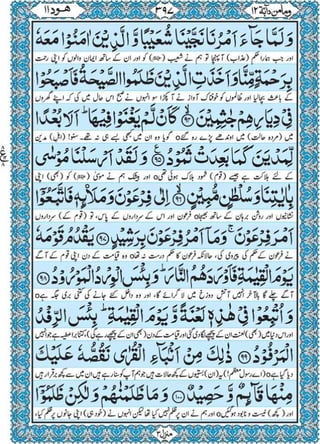 ومامن دابة ١٢
٣٩٧
هود ١١
وَلَمَّا جَآءَ اَمْرُنَا نَجَّيْنَا شُعَيْبًا وَّ الَّذِيْنَ اٰمَنُوْا مَعَهٗ
اور جب ہمارا حکم (عذاب) آ پہنچا تو ہم نے شعیب اور ان کے ساتھ ایمان والوں کو اپنی رحمت
بِرَحْمَةٍ مِّنَّا وَ اَخَذَتِ الَّذِيْنَ ظَلَمُوا الصَّيْحَةُ فَاَصْبَحُوْا
کے باعث بچا لیا اور ظالموں کو خوفناک آواز نے آ پکڑا سو انہوں نے صبح اس حال میں کی کہ اپنے گھروں
فِيْ دِيَارِهِمْ جٰثِمِيْنَ ﴿٩٤﴾ كَاَنْ لَّمْ يَغْنَوْا فِيْهَا ؕ اَلَا بُعْدًا
میں (مردہ حالت) میں اوندھے پڑے رہ گئے گویا وہ ان میں کبھی بسے ہی نہ تھے سنو! (اہل) مدین
لِّمَدْيَنَ كَمَا بَعِدَتْ ثَمُوْدُ ﴿٩٥﴾ وَ لَقَدْ اَرْسَلْنَا مُوْسٰى
کے لئے ہلاکت ہے جیسے (قوم) ثمود ہلاک ہوئی تھی اور بیشک ہم نے موسیٰ کو (بھی) اپنی
بِاٰيٰتِنَا وَ سُلْطٰنٍ مُّبِيْنٍ ﴿٩٦﴾ اِلٰى فِرْعَوْنَ وَ مَلَا۟ئِهٖ فَاتَّبَعُوْۤا
نشانیوں اور روشن برہان کے ساتھ بھیجا فرعون اور اس کے سرداروں کے پاس، تو (قوم کے) سرداروں
اَمْرَ فِرْعَوْنَ ۚ وَ مَاۤ اَمْرُ فِرْعَوْنَ بِرَشِيْدٍ ﴿٩٧﴾ يَقْدُمُ قَوْمَهٗ
نے فرعون کے حکم کی پیروی کی، حالانکہ فرعون کا حکم درست نہ تھا وہ قیامت کے دن اپنی قوم کے آگے
يَوْمَ الْقِيٰمَةِ فَاَوْرَدَهُمُ النَّارَ ؕ وَ بِئْسَ الْوِرْدُ الْمَوْرُوْدُ ﴿٩٨﴾
آگے چلے گا بالآخر انہیں آتشِ دوزخ میں لا گرائے گا، اور وہ داخل کئے جانے کی کتنی بری جگہ ہے
وَ اُتْبِعُوْا فِيْ هٰذِهٖ لَعْنَةً وَّ يَوْمَ الْقِيٰمَةِ ؕ بِئْسَ الرِّفْدُ
اور اس دنیا میں (بھی) لعنت ان کے پیچھے لگا دی گئی اور قیامت کے دن (بھی ان کے پیچھے رہے گی)، کتنا برا عطیہ ہے جو انہیں
الْمَرْفُوْدُ ﴿٩٩﴾ ذٰلِكَ مِنْ اَنْۢبَآءِ الْقُرٰى نَقُصُّهٗ عَلَيْكَ
دیا گیا ہے (اے رسولِ معظم!) یہ (ان) بستیوں کے کچھ حالات ہیں جو ہم آپ کو سنا رہے ہیں ان میں سے کچھ برقرار ہیں
مِنْهَا قَآئِمٌ وَّ حَصِيْدٌ ﴿١٠٠﴾ وَ مَا ظَلَمْنٰهُمْ وَ لٰكِنْ ظَلَمُوْۤا
اور (کچھ) نیست و نابود ہوگئیں اور ہم نے ان پر ظلم نہیں کیا تھا لیکن انہوں نے (خود ہی) اپنی جانوں پر ظلم کیا،
منزل ٣